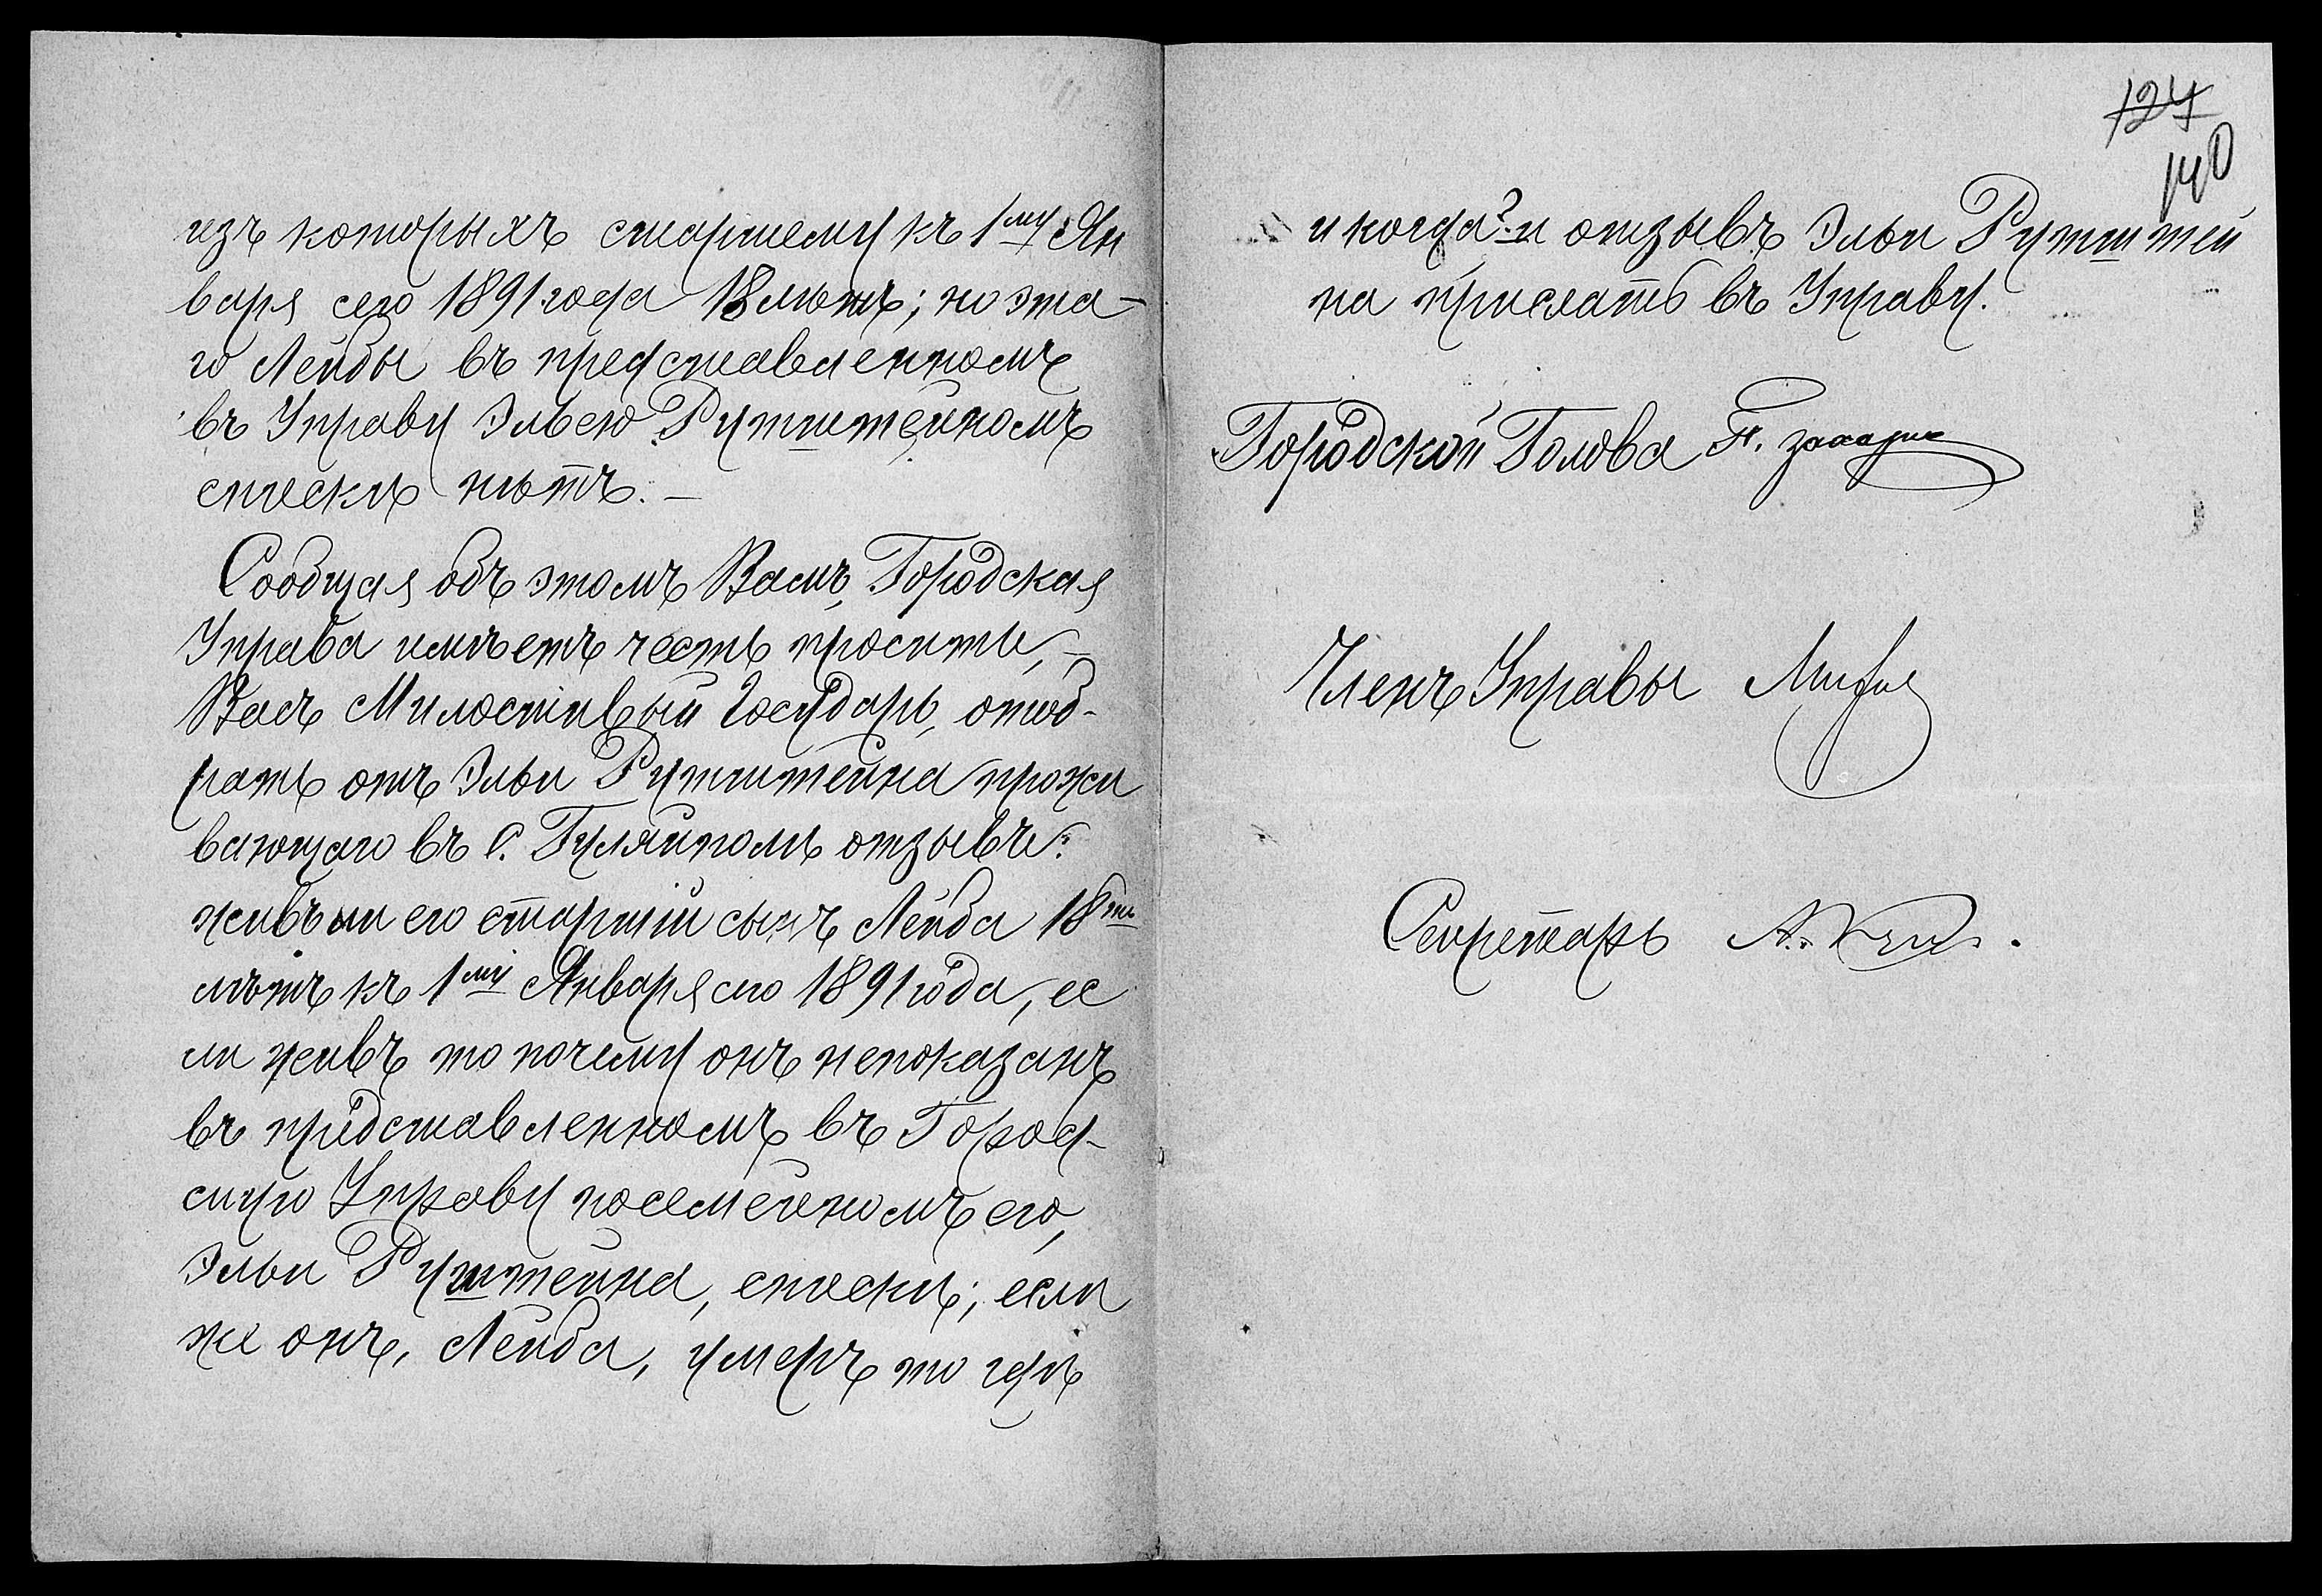 изъ которыхъ старшему къ 1му Ян
варя сего 1891 года 18 лѣтъ; но эта-
го Лейбы въ представленномъ
въ Управу Эльею Рутштейномъ
спискѣ нѣтъ. —
Сообщая объ этомъ Вамъ, Городская
Управа имѣетъ честь просить, —
Васъ Милостивый Государь, отоб-
рать отъ Эльи Рутштейна прожи
вающаго въ с. Гуляйполѣ отзывъ:
живъ ли его старшій сынъ Лейба 18ти
лѣтъ къ 1му Января сего 1891 года, ес
ли живъ то почему онъ непоказанъ
въ представленномъ въ Город-
скую Управу посемейномъ его,
Эльи Рутштейна, спискѣ; если
же онъ, Лейба, умеръ то гдѣ
127
140
и когда? и отзывъ Эльи Рутштей
на прислать въ Управу.
Городской Голова
Членъ Управы
Секретарь А.